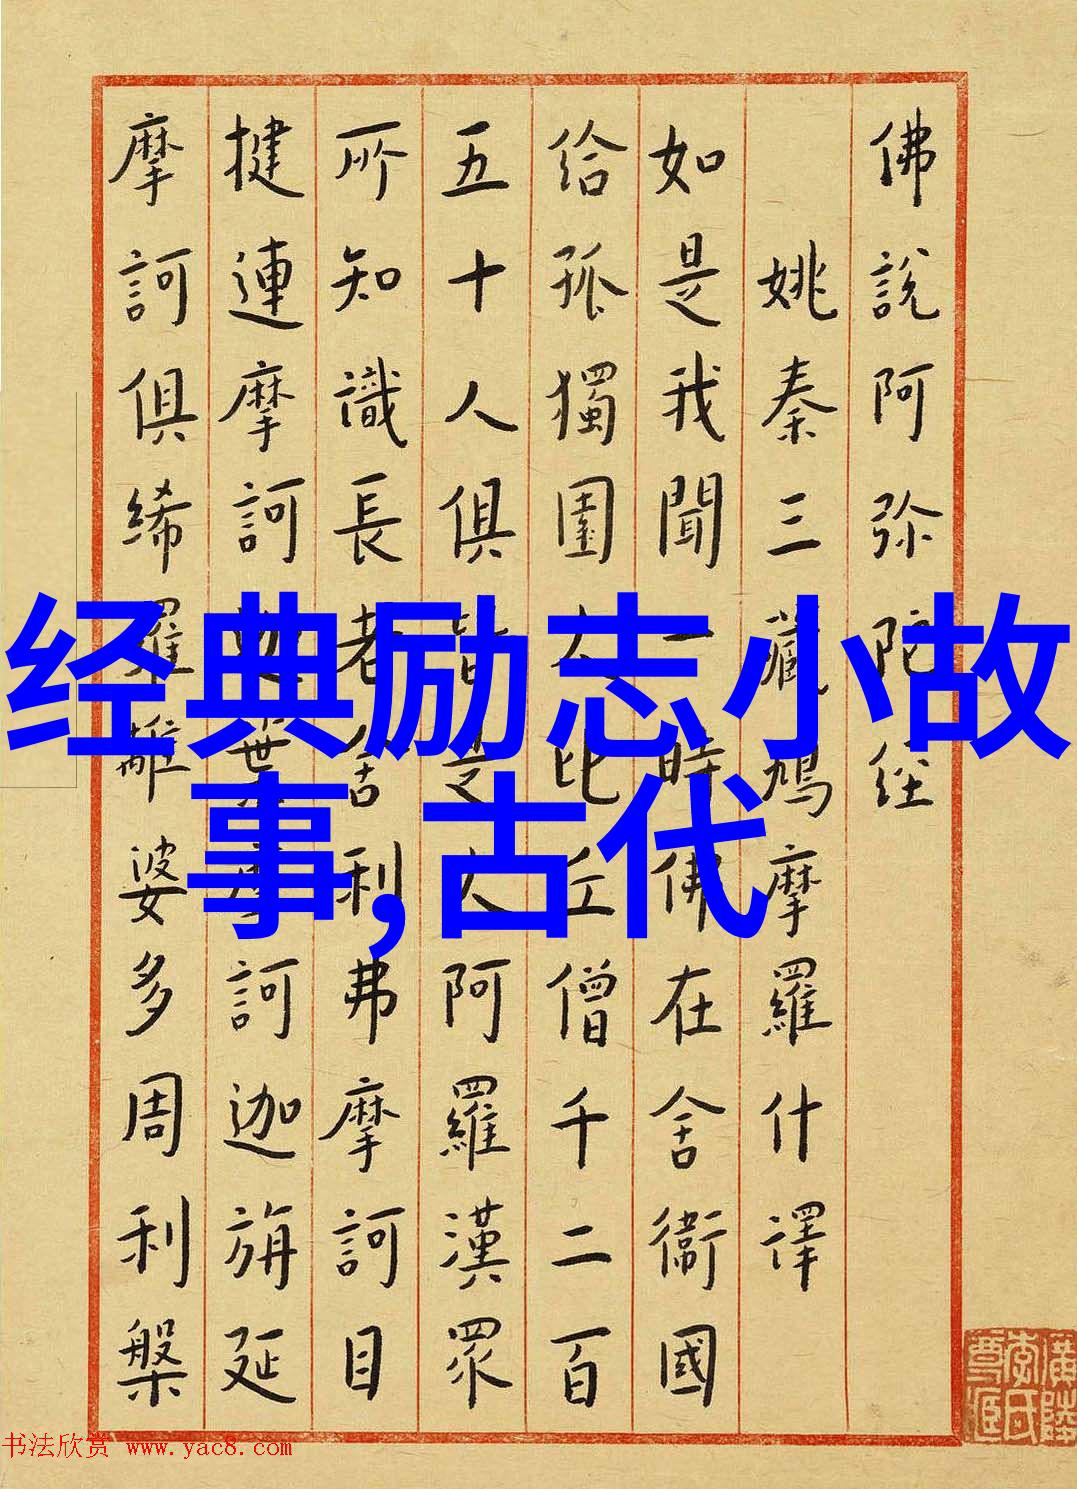 佛說阿弥陀经
姚秦三藏鳩摩羅什譯
如是我聞一時佛在舍衛國
给孤獨園大比丘僧千二百
五十人俱皆是大阿羅漢眾
所知識長老舍利弗摩訶目
揵連摩訶迦葉摩訶迦旃延
摩訶俱絺羅離婆多周利槃
经典励志小故
事,古代
书法欣赏 www.yac8.com